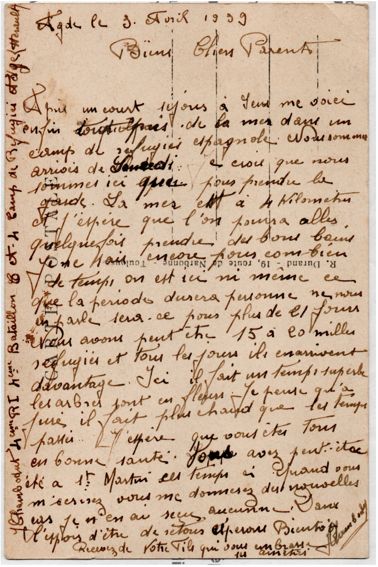 Agde le 3 Avril 1939
Biens Chers Parents
Apres un court sejours à Sens me voici
enfin toutpres de la mer dans un
camp de refugies espagnole nous sommes
arrivés de Samedi je crois que nous
sommes ici que pour prendre la
garde. La mer est à 4 Kilometres
et j'espère que l'on poura allé
quelquefois prendre des bons bains
On ne sait encore pour combien
de temps on est ici ni même ce
que la période durera personne ne nous
parle sera-ce pour plus de 21 jours
Nous avons peut être 15 à 20 milles
refugiés et tous les jours ils en arrivent
davantage Ici il fait un temps superbe
les arbres sont en fleurs Je pense qu'a
il fait plus chaud que les temps
passé J'espère que vous êtes tous
en bonne santé. Vous avez peut-être
été à St Martin ces temps ci Quand vous
m'ecrirez vous me donnerez des nouvelles
cas je n'en ai seu aucunne. Dans
l'espoirs d'être de retous esperons Bientôt
Recevez de Votre Fils qui vous embrasse
4ème RI 4ème Bataillon Camp de Refugiés Agde Herault
R. Durand - 19, route de Narbonne - Toulouse
CARTE POSTALE